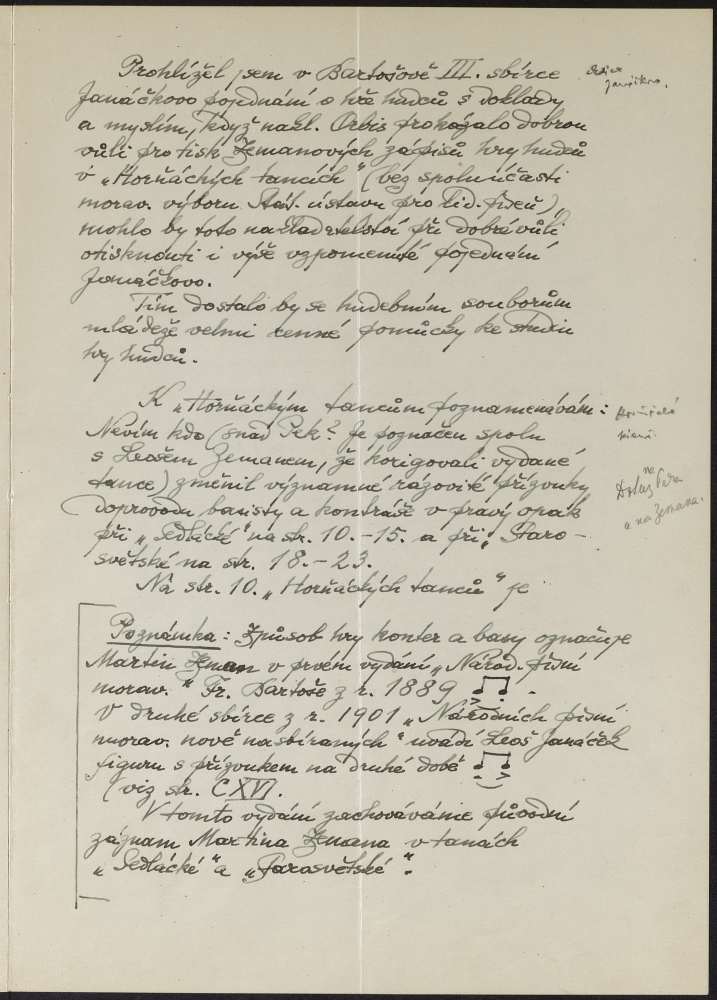 Prohlížel jsem v Bartošově III. sbírce
Janáčkovo pojednání o hře hudců s doklady
a myslím, když nakl. Orbis prokázalo dobrou
vůli pro tisk Zemanových zápisů hry hudců
v „Horňáckých tancích“ (bez spoluúčasti
morav. výboru Stát. ústavu pro lid. píseň),
mohlo by toto nakladatelství při dobré vůli
otisknouti i výše vzpomenuté pojednání
Janáčkovo.
Tím dostalo by se hudebním souborům
mládeže velmi cenné pomůcky ke studiu
hry hudců.
K „Horňáckým tancům poznamenávám:
Nevím kdo (snad Pek? Je poznačen spolu
s Leošem Zemanem, že korigovali vydané
tance) změnil významné rázovité přízvuky
doprovodu basisty a kontráše v pravý opak
při „Sedlácké“ na str. 10.-15. a při „Staro-
světské na str. 18.-23.
Na str. 10. „Horňáckých tanců“ je
Poznámka: Způsob hry konter a basy označuje
Martin Zeman v prvém vydání „Národ. písní
morav.“ Fr. Bartoše z r. 1889 .
V druhé sbírce z r. 1901 „Národních písní
morav. nově nasbíraných“ uvádí Leoš Janáček
figuru s přízvukem na druhé době
(viz str. CXVI.
V tomto vydání zachováváme původní
záznam Martina Zemana v tanách
„Sedlácké“ a „Starosvětské“.
na
Dotaz Peka
a na Zemana.